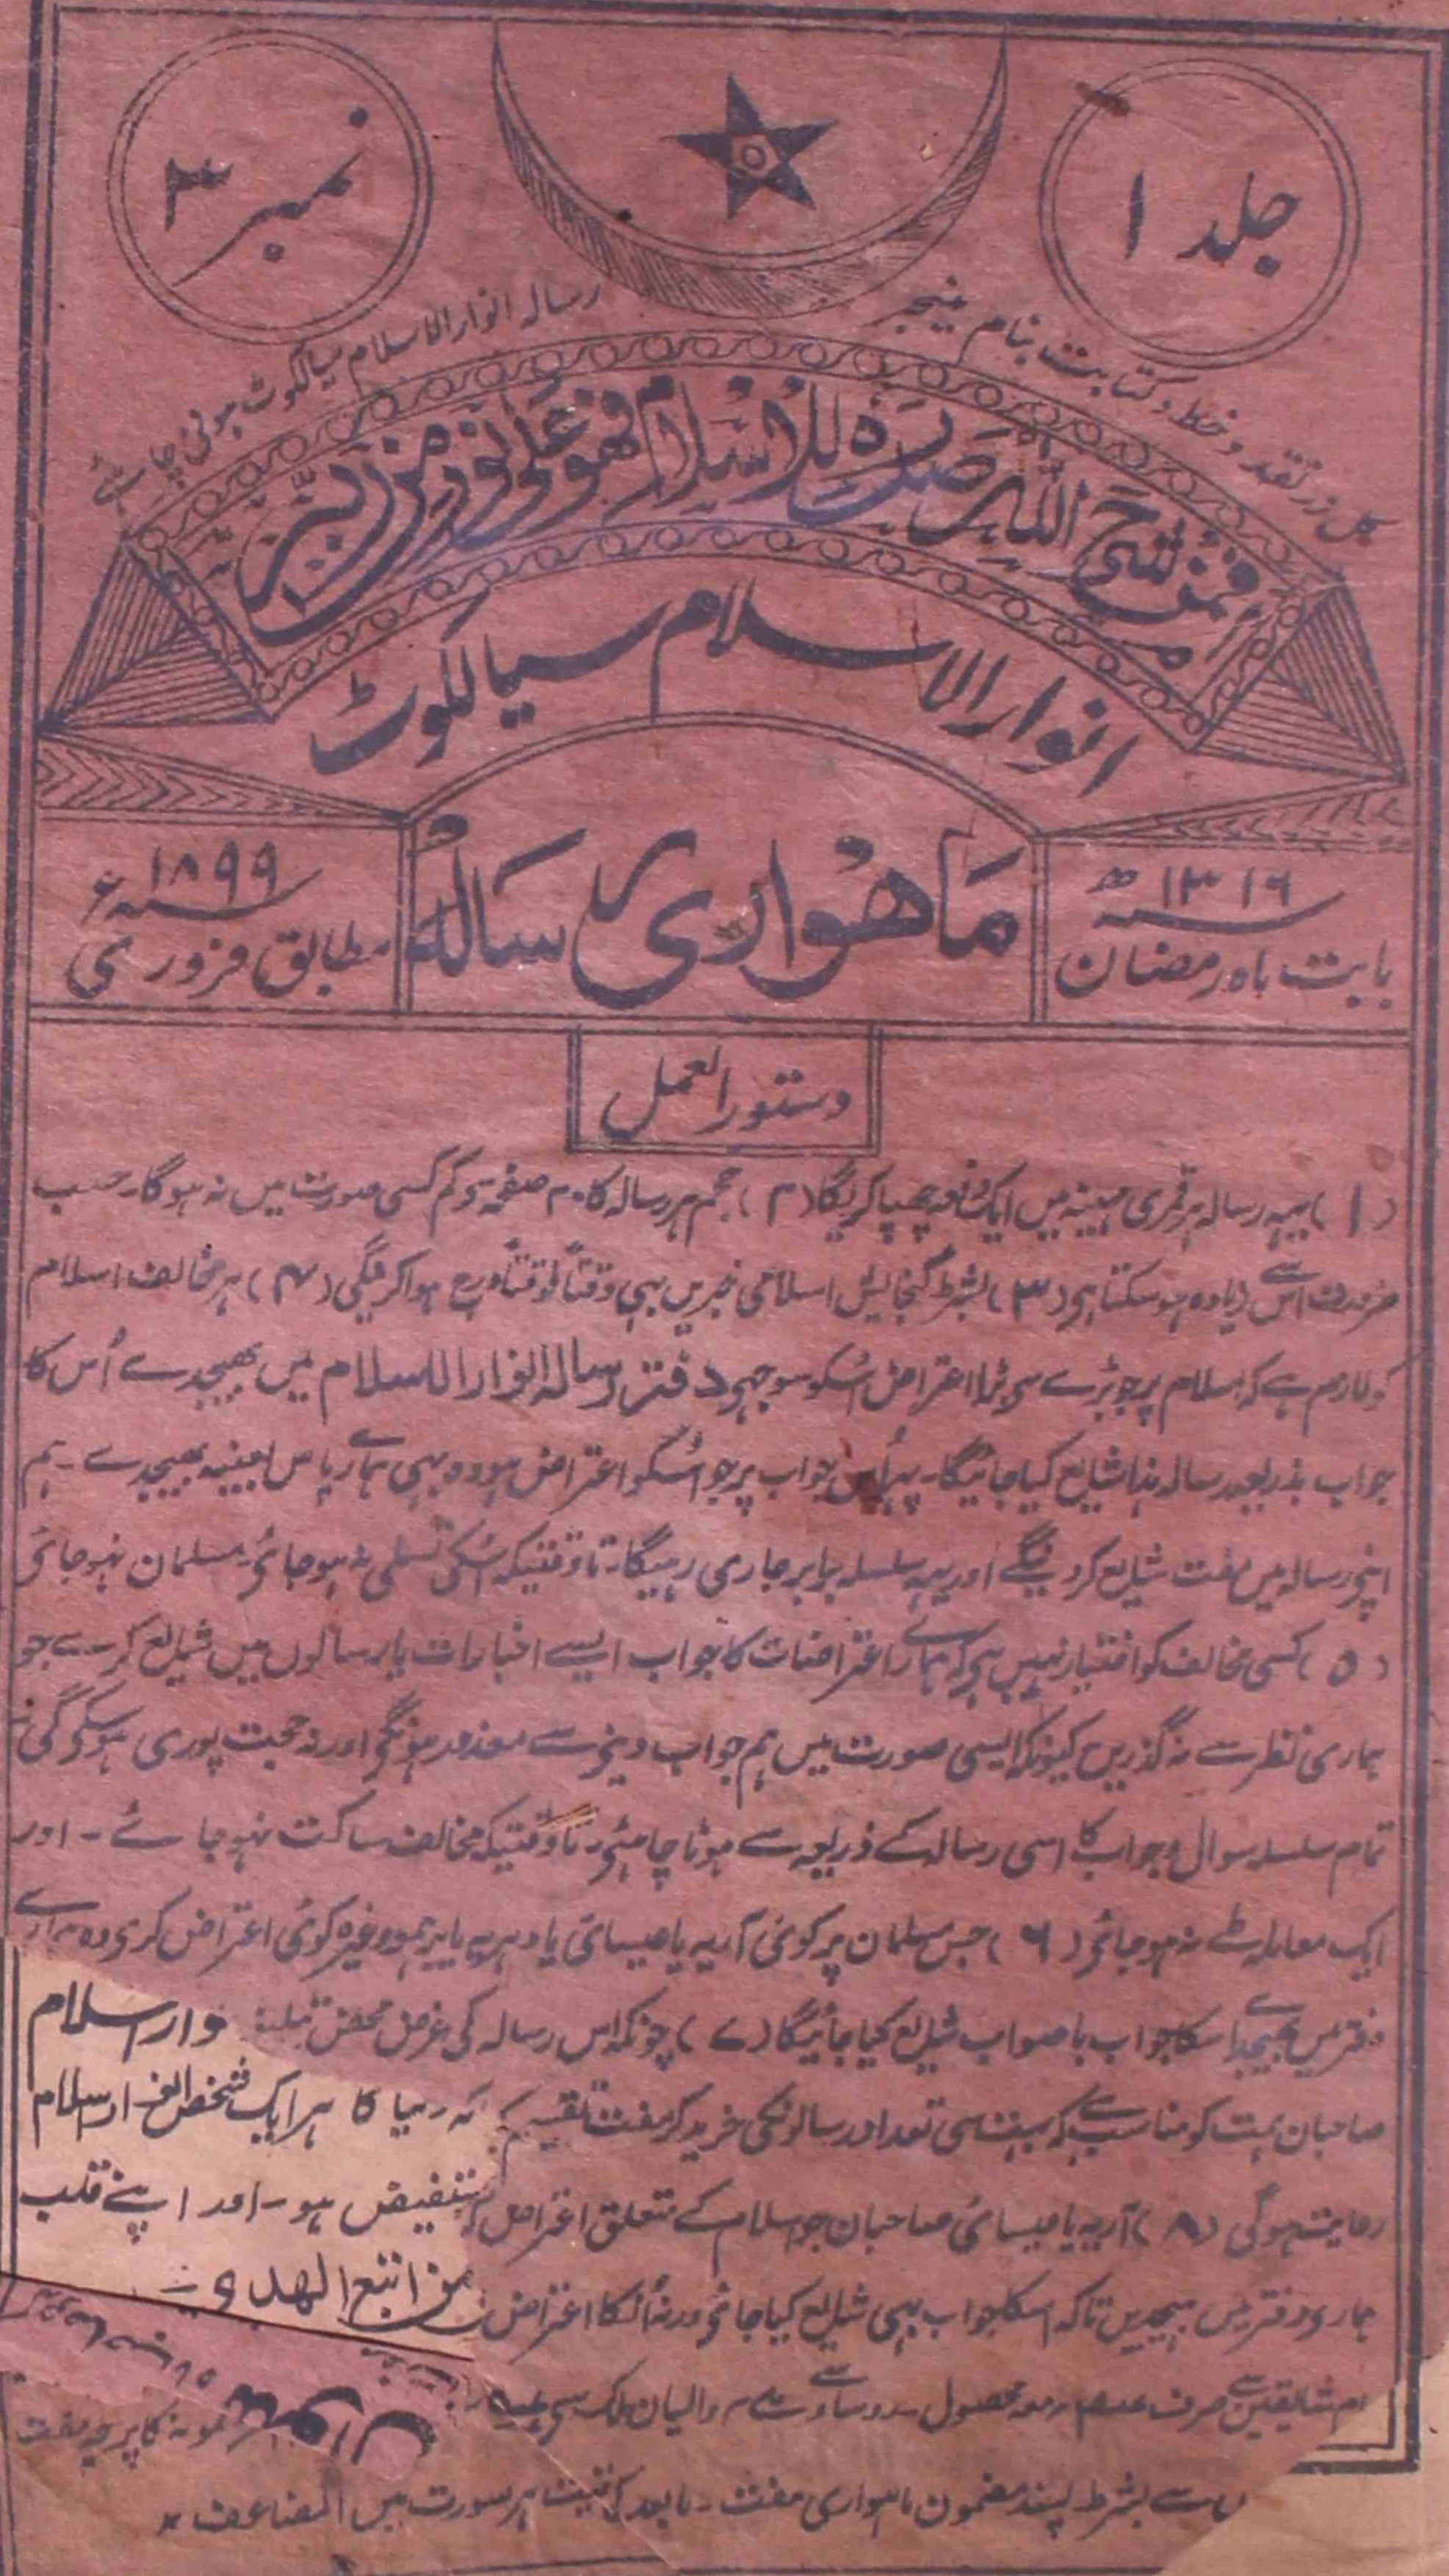 جلد ۱
نمبر ۳
کل زر نقد و خط و کتابت بنام مینجر رسالہ انوار الاسلام سیالکوٹ ہونی چاہئے
فَمَنْ شَرَحَ اللّٰہُ صَدْرَہٗ لِلْاِسْلَامِ فَھُوَ عَلٰی نُوْرٍ مِّنْ رَّبِّہٖ
انوار الاسلام سیالکوٹ
ماہواری رسالہ
۱۳۱۶ سنہ ھ
بابت ماہ رمضان
۱۸۹۹ سنہ ء
مطابق فروری
دستور العمل
(۱) یہہ رسالہ ہر قمری مہینہ میں ایک دفعہ چھپا کریگا (۲) حجم ہر رسالہ کا ۲۰ صفحہ سے کم کسی صورت میں نہ ہوگا۔ حسب
ضرورت اس سے زیادہ ہوسکتا ہی (۳) بشرط گنجائیش اسلامی خبریں بہی وقتاً فوقتاً درج ہوا کرینگی (۴) ہر مخالف اسلام
کو لازم ہے کہ اسلام پر جو بڑے سے بڑا اعتراض اُسکو سوجہے دفتر رسالہ انوار الاسلام میں بھیجدے اُس کا
جواب بذریعہ رسالہ ہذا شایع کیا جائیگا۔ پہر اُس جواب پر جو اُسکو اعتراض ہو وہ بہی ہمارے پاس بھیجدے۔ ہم
اپنے رسالہ میں مفت شایع کردینگے اور یہہ سلسلہ برابر جاری رہیگا۔ تاوقتیکہ اُسکی تسلی نہ ہوجائے۔ مسلمان نہوجائے
(۵) کسی مخالف کو اختیار نہیں ہی کہ ہمارے اعتراضات کا جواب ایسے اخبارات یا رسالوں میں شایع کرے جو
ہماری نظر سے نہ گذریں کیونکہ ایسی صورت میں ہم جواب دینے سے معذور ہونگے اور نہ حجت پوری ہوسکے گی
تمام سلسلہ سوال و جواب کا اسی رسالہ کے ذریعہ سے ہونا چاہئے۔ تاوقتیکہ مخالف ساکت نہوجائے۔ اور
ایک معاملہ طے نہ ہوجائے (۶) جس مسلمان پر کوئی آریہ یا عیسائی یا دہریہ یا برہمو وغیرہ کوئی اعتراض کری وہ ہمارے
دفتر میں بھیجدے اسکا جواب باصواب شایع کیا جائیگا (۷) چونکہ اس رسالہ کی غرض محض وار اسلام
صاحبان ہمت کو مناسب ہے کہ بہت سی تعداد رسالونکی خرید کر مفت تقسیم کا ہر ایک شخص اسلام
رعایت ہوگی (۸) آریہ یا عیسائی صاحبان جو اسلام کے متعلق اعتراض ہو۔ اور اپنے قلب
ہماری دفتر میں بھیجدیں تاکہ اسکا جواب بہی شایع کیا جائے ورنہ اُنکا اعتراض من اتبع الہدی
شایقین سے صرف محصول۔ والیان ملک سے نمونہ کا پرچہ مفت
سے بشرط پسند مضمون ماہواری مفت۔ مابعد کی قیمت ہر صورت میں المضاعف